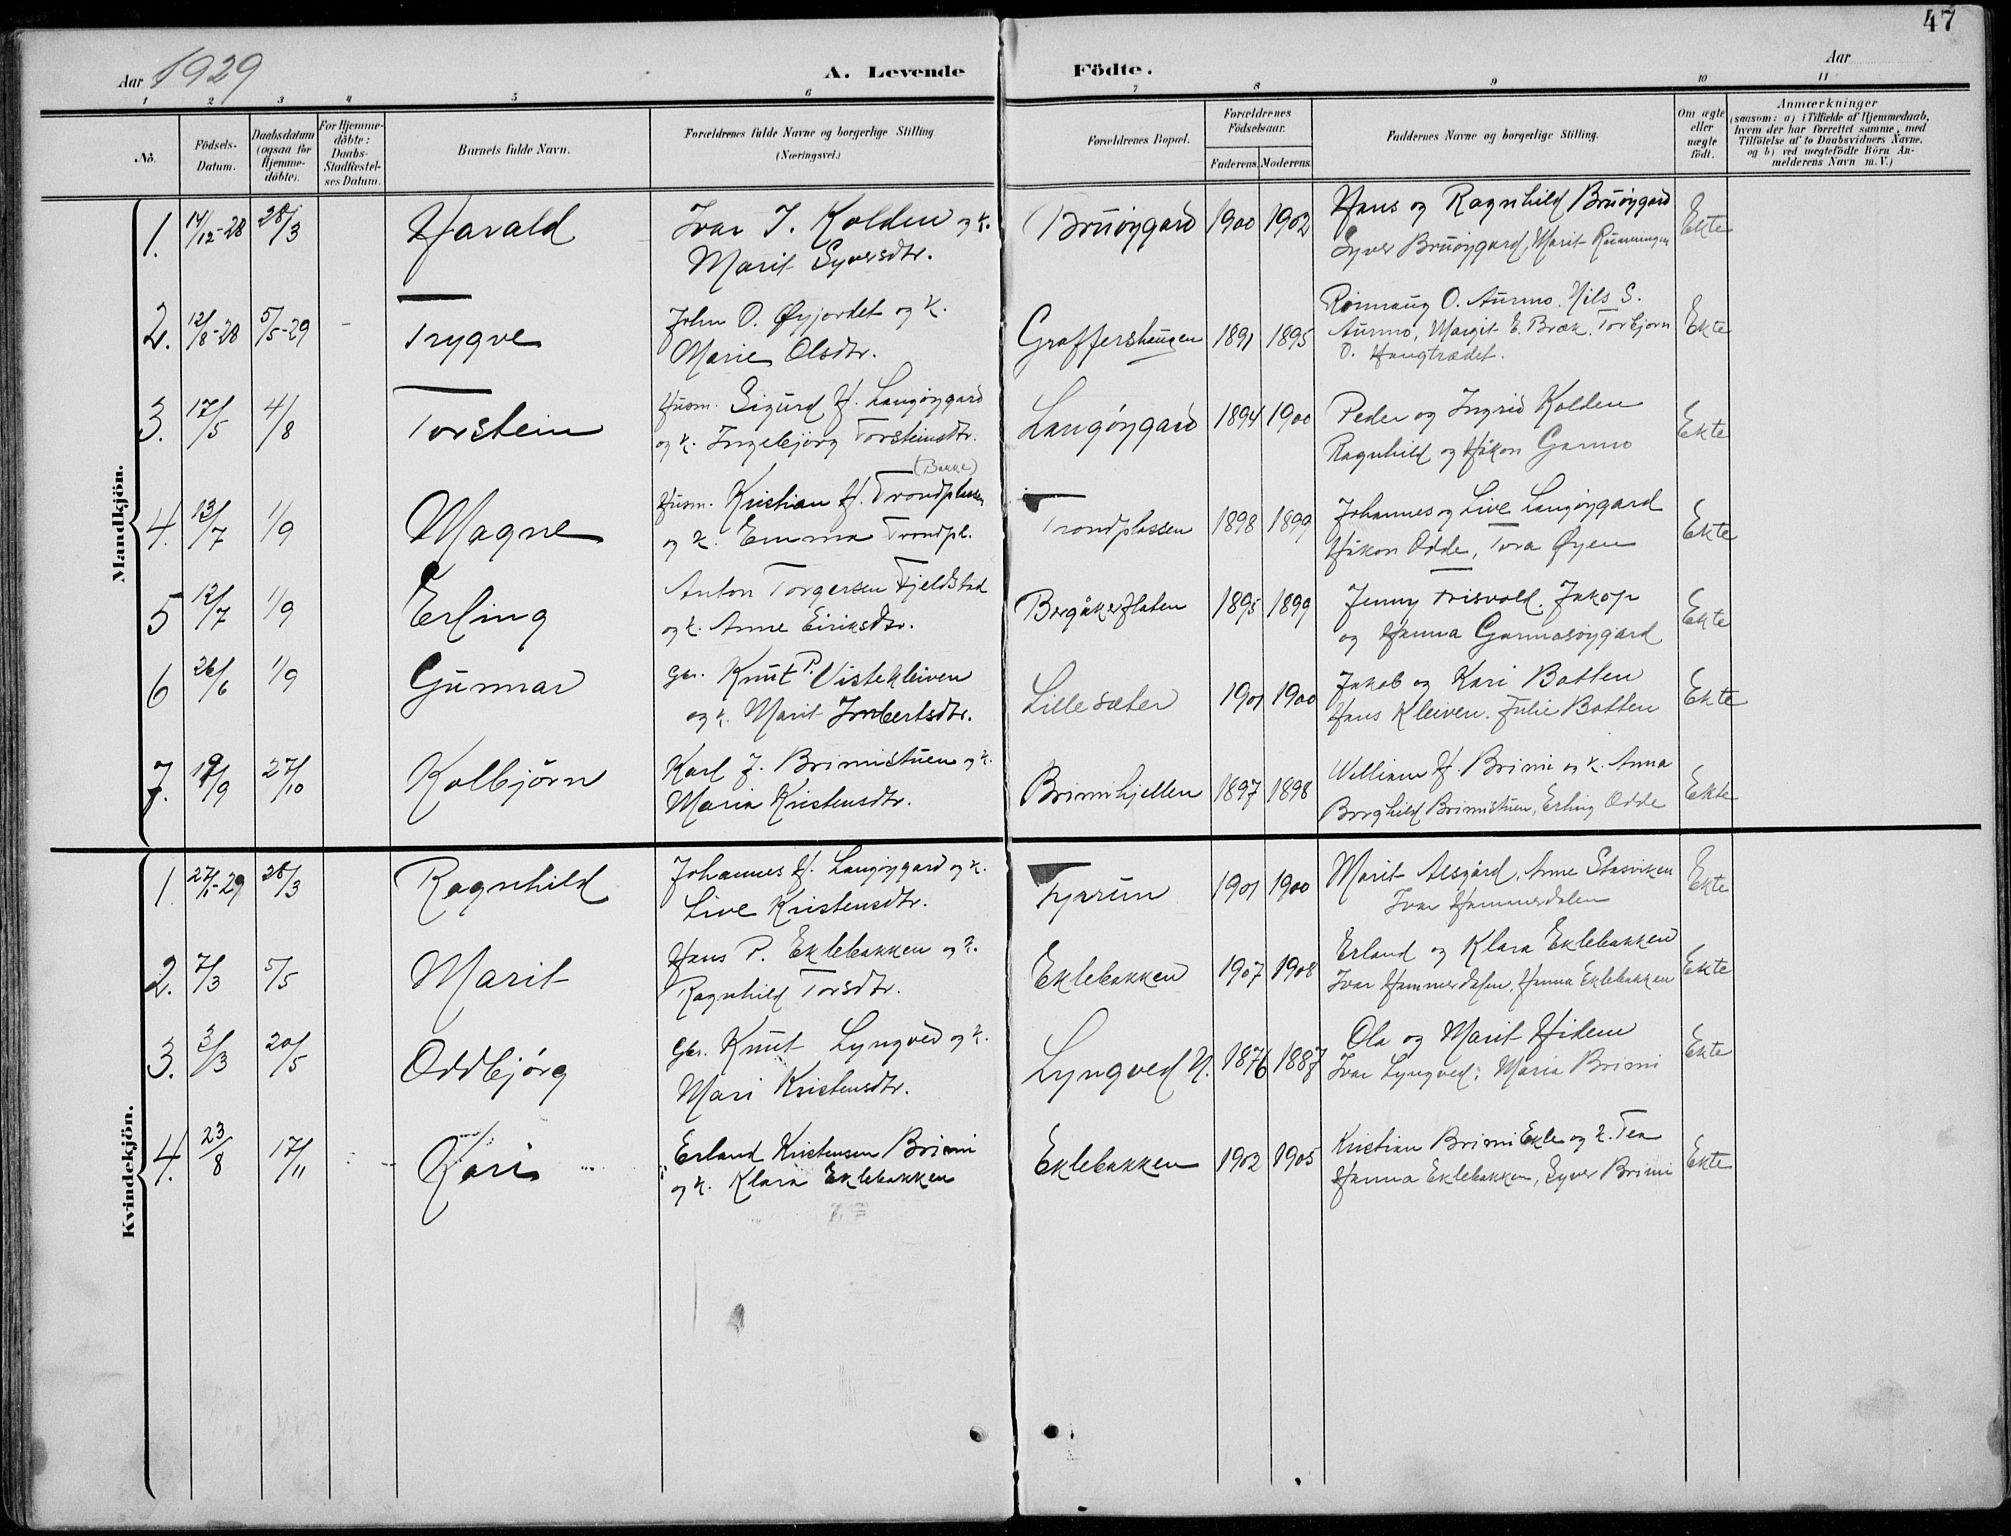 47
Aar 1929
A. Levende Födte.
Aar
1 2 3 4 5 6 7 8 9 10 11
No.
Födsels-Datum.
Daabsdatum (ogsaa for Hjemme-döbte).
For Hjemme-döbte: Daabs-Stadfæstel-ses Datum.
Barnets fulde Navn.
Forældrenes fulde Navne og borgerlige Stilling (Næringsvei.)
Forældrenes Bopæl.
Forældrenes Födselsaar.
Faderens. Moderens.
Faddernes Navne og borgerlige Stilling.
Om ægte eller uægte födt.
Anmærkninger (saasom: a) i Tilfælde af Hjemmedaab, hvem der har forrettet samme, med Tilföielse af to Daabsvidners Navne, og b) ved uægtefödte Börn An-melderens Navn m. V.)
Mandkjön.
1. 14/12-28 28/3 Harald Ivar J. Kolden og k. Bruøygard 1900 1902 Hans og Ragnhild Bruøygard Ekte
Marit Syversdtr. Syver Bruøygard, Marit
2. 12/8-28 5/5-29 - Trygve John O. Øyjordet og k. Graffershaugen 1891 1895 Rønnaug O. Aurmo. Nils S. Ekte
Marie Olsdtr. Aurmo, Margit E. Bræk. Torbjørn
O. Haugtrædet.
3. 17/5 4/8 Torstein Husm. Sigurd H. Langøygard Langøygard 1894 1900 Peder og Ingrid Kolden Ekte
og k. Ingebjørg Torsteinsdtr. Ragnhild og Håkon Garmo
(Bakke)
4. 13/7 1/9 Magne Husm. Kristian H. Trondplassen Trondplassen 1898 1899 Johannes og Live Langøygard Ekte
og k. Emma Trondpl. Håkon Odde, Tora Øyen
5 12/7 1/9 Erling Anton Torgersen Fjeldstad Bergåkerflaten 1895 1899 Jenny Trisvold. Jakop Ekte
og k. Anne Eiriksdtr. og Hanna Garmosøygard
6 26/6 1/9 Gunnar Gbr. Knut P. Vistekleiven Lillesæter 1901 1900 Jakob og Kari Botten Ekte
og k. Marit Imbertsdtr. Hans Kleiven. Julie Botten
7. 19/9 27/10 Kolbjørn Karl J. Brimistuen og k. Brimihjellen 1897 1898 William H. Brimi og k. Anna Ekte
Maria Kristensdtr. Borghild Brimistuen, Erling Odde
Kvindekjön.
1. 27/1-29 28/3 Ragnhild Johannes H. Langøygard og k. 1901 1900 Marit Alsgård, Anne Stasviken Ekte
Live Kristensdtr. Ivar Hammerdalen
2. 7/3 5/5 Marit Hans P. Eklebakken og k. Eklebakken 1907 1908 Erland og Klara Eklebakken Ekte
Ragnhild Torsdtr. Ivar Hammerdalen, Hanna Eklebakken
3. 3/3 20/5 Oddbjørg Gbr. Knut Lyngved og k. Lyngved N. 1876 1887 Ola og Marit Hidem Ekte
Mari Kristensdtr. Ivar Lyngved; Maria Brimi
4. 23/8 17/11 Kari Erland Kristensen Brimi Eklebakken 1902 1905 Kristian Brimi Ekle og k. Tea Ekte
og k. Klara Eklebakken Hanna Eklebakken, Syver Brimi